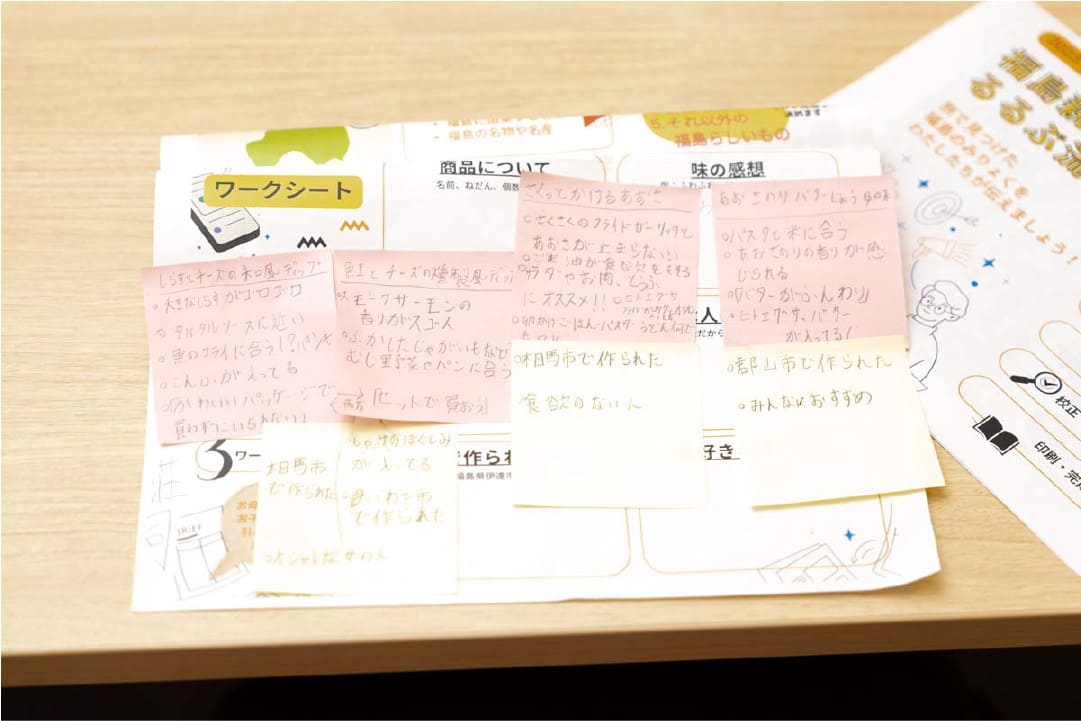 ・福島の名物や名産
5.それ以外の
福島らしいもの
ワークシート
商品について
名前、ねだん、個数
味の感想
さくっとかけるあおさ
○さくさくのフライドガーリックと
あおさが止まらない!
○ごま油が食欲を
サラダやお肉、とうふ
にオススメ!! ○ヒトエグサ
卵かけごはん・パスタ・うどん何で
あおさのりバターしょうゆ味
○パスタと米に合う
○あおさのりの香りが感
じられる
○バターがふんわり
○ヒトエグサ、バター
が入ってる!
しらすとチーズの和風ディップ
○大きなしらすがゴロゴロ
○タルタルソースに近い
○魚のフライに合うし?パンも
○こんぶが入ってる
○かわいいパッケージで
買わずにいられない!
鮭とチーズの燻製風ディップ
スモークサーモンの
香りがスゴイ
○ふかしたじゃがいもなど
むし野菜やパンに合う
「セットで買おう」
○相馬市で作られた
食欲のない人
○郡山市で作られた
○みんなにおすすめ
相馬市
で作られた
しゃけのほぐしみ
が入ってる
いわき市
で作られた
3
ワー
で作られ
福島県伊達市
好き
荘
BRIEF
福島
るるぶ
旅で見つけた
福島のみりょくを
わたしたちが伝えましょう!
校正
印刷・完